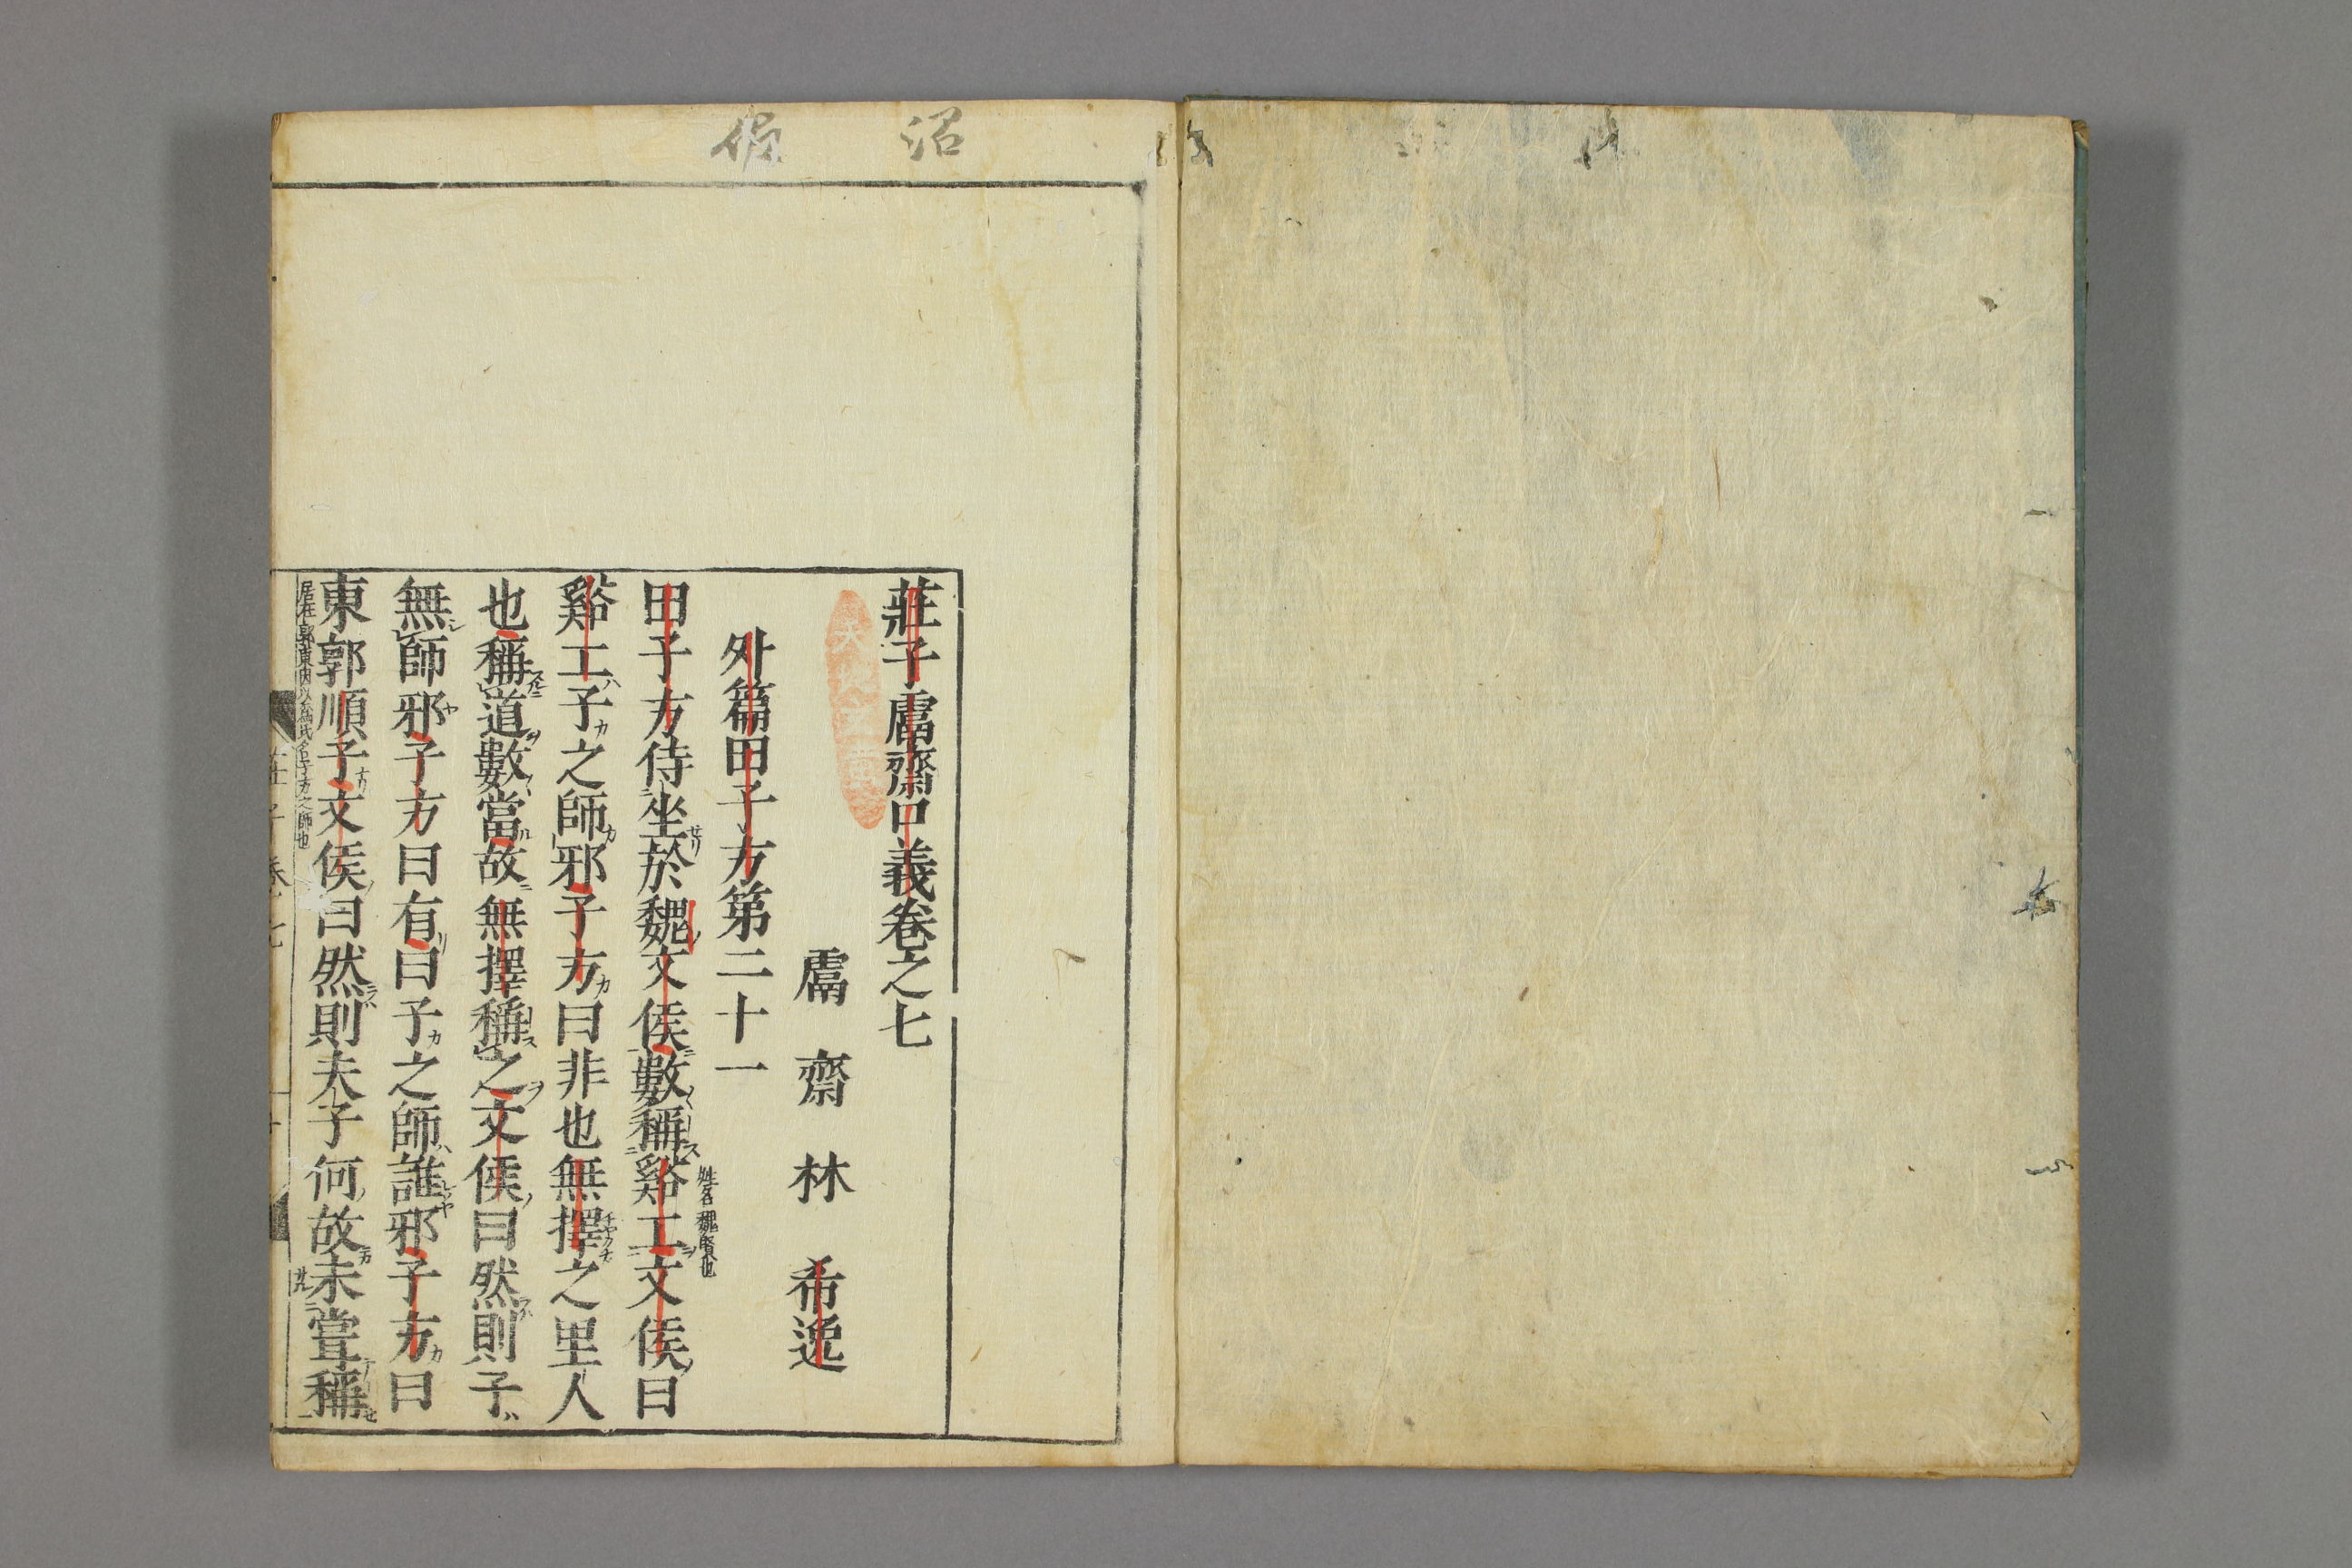 沼
莊子鬳齋口義卷之七
鬳齋林希逸
外篇田子方第二十一
田子方侍坐於魏文侯數稱谿工文侯曰
姓名魏賢也
谿工子之師邪子方曰非也無擇之里人
也稱道數當故無擇稱之文侯曰然則子
無師邪子方曰有曰子之師誰邪子方曰
東郭順子文侯曰然則夫子何故未嘗稱
居在郭東因以爲氏名子方之師也